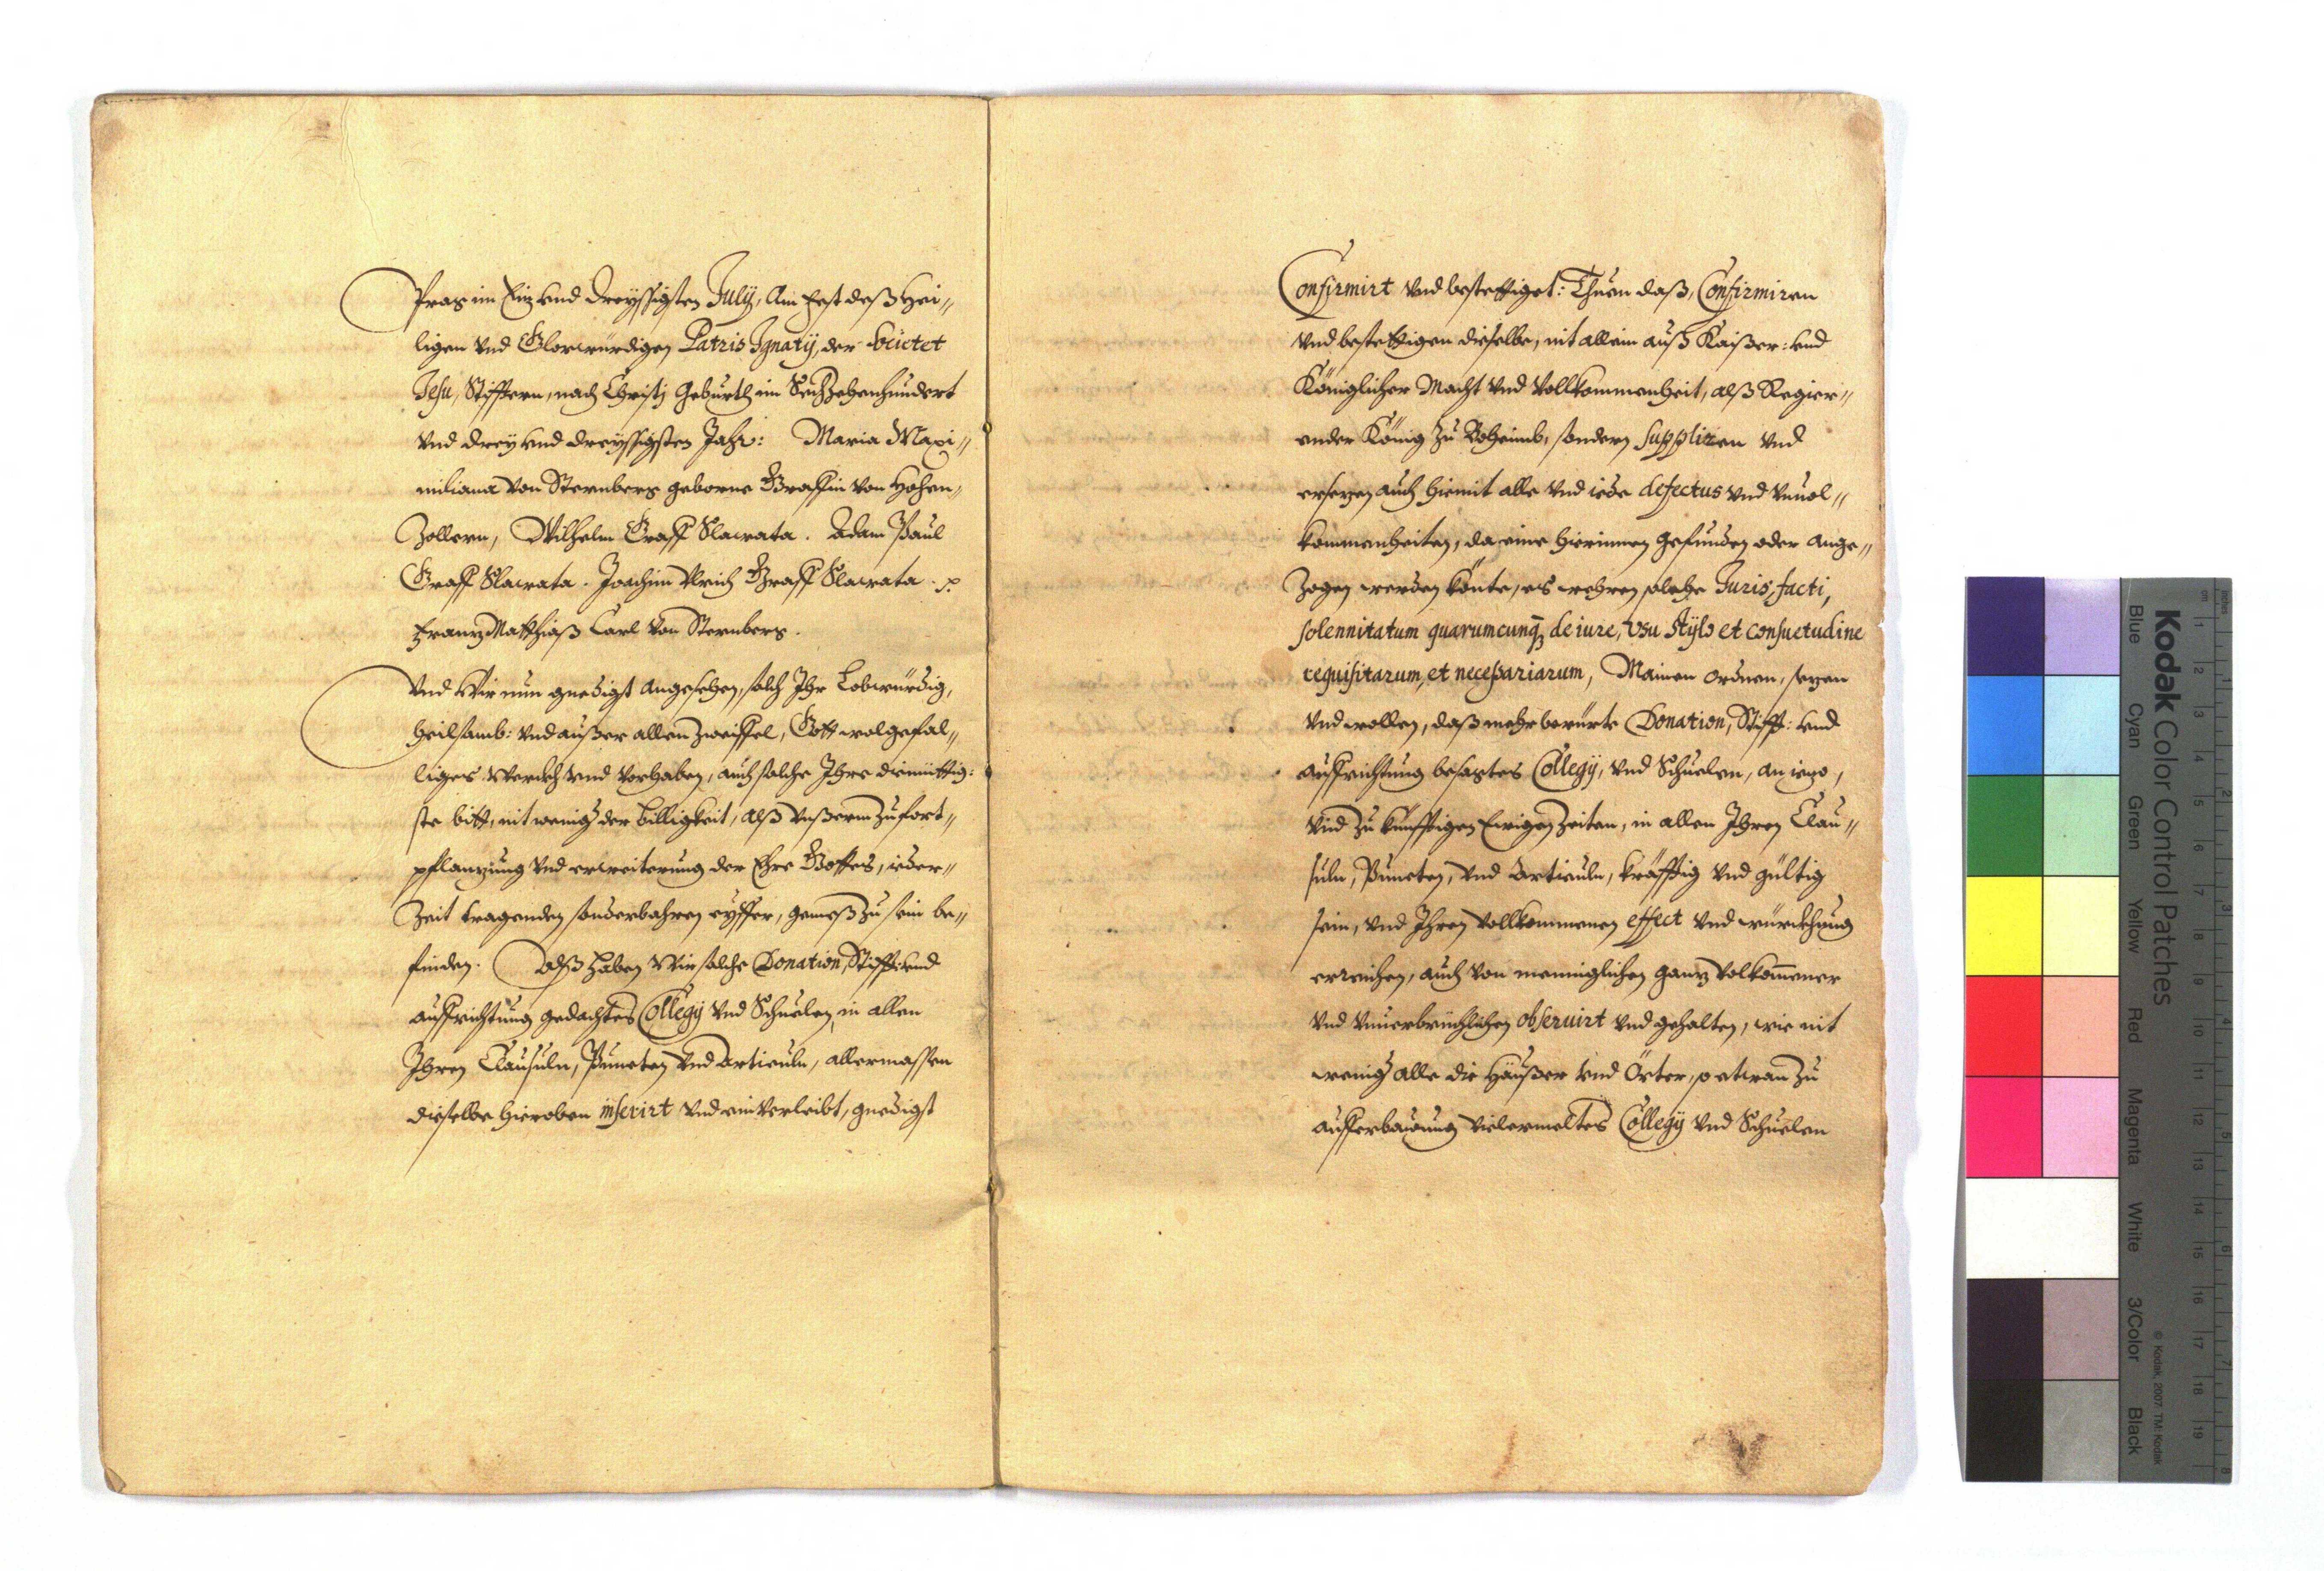 Prag im Ein und dreyssigsten July, Am Fest deß Hei„
ligen vnd Glorwürdigen Patris Ignatÿ, der Societet
Jesu, Stifftern, nach Christi Geburth im Sechzehenhundert
vnd drey vnd dreyssigsten Jahr: Maria Maxi„
miliana von Sternberg geborne Graffin von Hohen„
Zollern, Wilhelm Graff Slawata. Adam Paul
Graff Slawata. Joachim Vlrich Graff Slawata.
Franz Matthiaß Carl von Sternberg.
Vnd Wir nun gnedigst angesehen, solch Ihr Lobwürdig,
heilsamb: vnd außer allen Zweiffel, Gott wolgefal„
liges Werckh vnd Vorhaben, auch solche Ihre diemüttig:
ste bitt, nit wenig der billigkeit, alß vnßerm zu fort„
pflanzung vnd erweiterung der Ehre Gottes, ieder„
Zeit tragenden sonderbahren eyffer, gemeß zu sein be„
finden. Alß haben Wir solche Donation, Stifft: vnd
auffrichtung gedachtes Collegÿ vnd Schuelen, in allen
Ihren Clausuln, Puncten vnd Articuln, allermassen
dieselbe hieroben inserirt vnd einverleibt, gnedigst
Confirmirt vnd bestettiget: Thuen daß, Confirmiren
vnd bestettigen dieselbe, nit allein auß Kaißer: vnd
Königlicher Macht vnd Vollkommenheit, alß Regier„
ender König zu Boheimb, sondern suppliren vnd
ersezen auch hiemit alle vnd iede defectus vnd vnuol„
kommenheiten, da eine hierinnen gefunden oder ange„
zogen werden könte, es wehren solche Iuris, facti,
solennitatum quarumcunqꝫ de iure, vsu stÿlo et consuetudine
requisitarum, et neceßariarum, Mainen ordnen, sezen
vnd wollen, daß mehr berürte Donation, Stifft: vnd
auffrichtung besagtes Collegÿ, vnd Schuelen, an iezo,
vnd zu künfftigen Ewigen Zeiten, in allen Ihren Clau„
suln, Puncten, vnd Articuln, kräfftig vnd gültig
sein, vnd Ihren vollkommenen effect vnd würckhung
erreichen, auch von menniglichen ganz volkom̅ener
vnd vnuerbrüchlichen obseruirt vnd gehalten, wie nit
wenig alle die Häußer vnd Örter, so etwan zu
aufferbauung vielermeltes Collegÿ vnd Schuelen
Kodak Color Control Patches
Blue Cyan Green Yellow Red Magenta White 3/Color Black
© Kodak, 2007. TM: Kodak
inches 1 2 3 4 5 6 7 8
cm 1 2 3 4 5 6 7 8 9 10 11 12 13 14 15 16 17 18 19